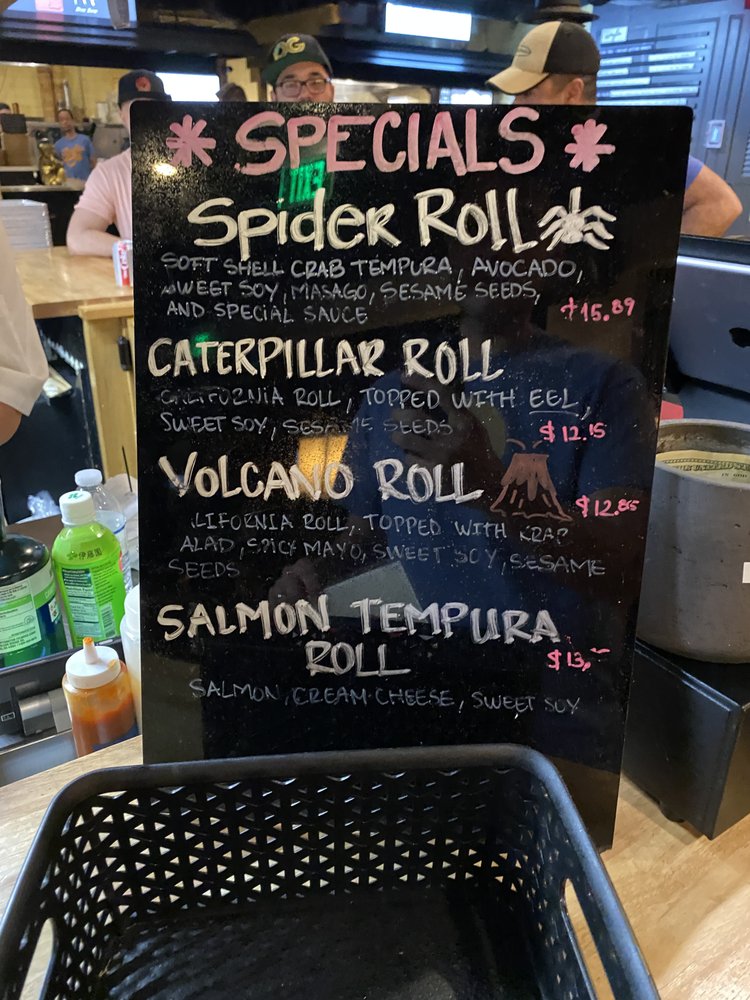 OG
* SPECIALS *
Spider Roll
SOFT SHELL CRAB TEMPURA, AVOCADO,
SWEET SOY, MASAGO, SESAME SEEDS,
AND SPECIAL SAUCE
$15.89
CATERPILLAR ROLL
CALIFORNIA ROLL, TOPPED WITH EEL,
SWEET SOY, SESAME SEEDS
$12.15
VOLCANO ROLL
$12.85
ALIFORNIA ROLL, TOPPED WITH KRAB
ALAD, SPICY MAYO, SWEET SOY, SESAME
SEEDS
SALMON TEMPURA
ROLL
$13,-
SALMON, CREAM CHEESE, SWEET SOY